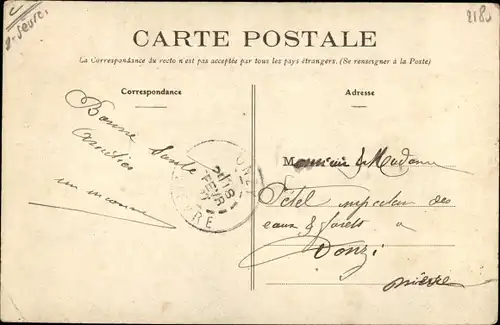 2-Sèvres
2180
CARTE POSTALE
La Correspondance du recto n'est pas acceptée par tous les pays étrangers. (Se renseigner à la Poste)
Correspondance
Adresse
Bonne Santé
Amitiés
Monsieur & Madame
Pétel inspecteur des
eaux & forêts à
Donzi
Nièvre
18
FEVR